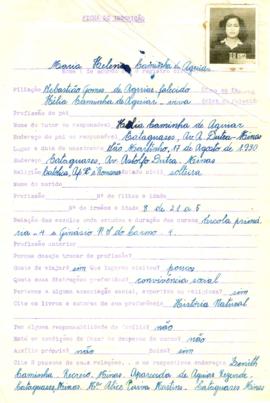 FICHA DE INSCRIÇÃO
Maria Helena Caminha de Aguiar
Nome ( de acordo com o registro civil )
Filiação Sebastião Gomes de Aguiar, falecido
Hélia Caminha de Aguiar - viva
Profissão do pai
Nome do tutor ou responsável Hélia Caminha de Aguiar
Endereço do pai ou responsável Cataguazes, Av. A. Dutra - Minas
Lugar e data de nascimento São Martinho, 17 de Agosto de 1930
Endereço Cataguazes, Av. Astolfo Dutra. Minas
Religião Católica, Ap. e Romana Estado civil solteira
Nome do marido
Nº de filhos e idade
Nº de irmãos e idade 3 de 21 a 5
Relação das escolas onde estudou e duração dos cursos Escola primá
ria - 4 e Ginásio N. S. do Carmo 4
Profissão anterior
Porque deseja trocar de profissão?
Gosta de viajar? sim Que lugares visitou? poucos
Quais suas distrações preferidas? convivência social
Pertence a alguma associação social, esportiva ou religiosa? sim
Cite os livros e autores de sua preferência História Natural
Tem alguma responsabilidade de família? não
Está em condições de fazer as despesas do curso? não
Auxílio próprio? não Bolsa? sim
Cite 3 pessoas de suas relações, e os respectivos endereços Zenith
Caminha - Recreio, Minas. Aparecida de Aguiar Rezende
Cataguazes, Minas. Mª Alice Paiva Martins - Cataguazes Minas